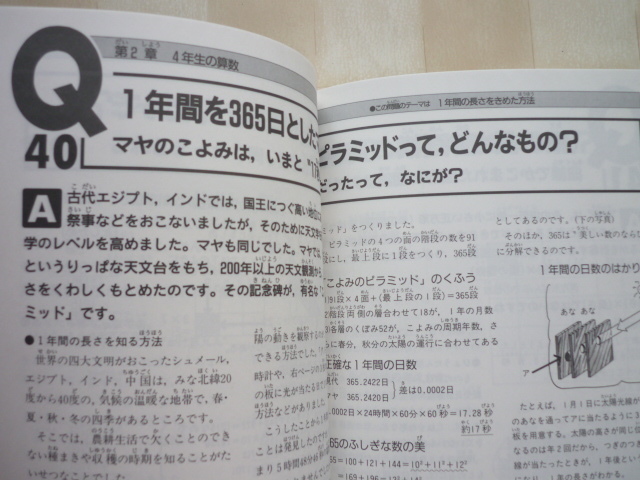 第2章 4年生の算数
Q
40
1年間を365日とした
マヤのこよみは,いまと"17
A
古代エジプト,インドでは,国王につぐ高い地位
祭事などをおこないましたが,そのために天文
学のレベルを高めました。マヤも同じでした。マヤで
というりっぱな天文台をもち,200年以上の天文観測
さをくわしくもとめたのです。その記念碑が,有名な
ミッド」です。
●1年間の長さを知る方法
世界の四大文明がおこったシュメール,
エジプト,インド,中国は,みな北緯20
度から40度の,気候の温暖な地帯で,春・
夏・秋・冬の四季があるところです。
そこでは,農耕生活で欠くことのでき
ない種まきや収穫の時期を知ることがた
いせつなことでした。
陽の動きを観察する
できる方法でした。
時計や,右ページの
の板に光が当たるの
方法などがありまし
こうしたことから
ことは発見したので
まり5時間48分46
●この問題のテーマは 1年間の長さをきめた方法
ピラミッドって,どんなもの?
だったって,なにが?
ミッド」をつくりました。
ピラミッドの4つの面の階段の数を91
段にし,最上段に1段をつくり,365段
「こよみのピラミッド」のくふう
91段×4面+(最上段の1段)=365段
階段両側の層合わせて18が,1年の月数
各層のくぼみ52が,こよみの周期年数,さ
らに春分,秋分の太陽の運行に合わせてある
正確な1年間の日数
現代 365.2422日
マヤ 365.2420日
差は0.0002日
0.0002日×24時間×60分×60秒=17.28秒
約17秒
365のふしぎな数の美
365=100+121+144=10²+11²+12²
=169+196=13²+14²
としてあるのです。(下の写真)
そのほか,365は"美しい数のならび
に分解できるのです。
1年間の日数のはかり
あな あな
ア
たとえば,1月1日に太陽光線が
のあなを通ってアに当たるように
板を用意する。太陽の高さが同じ
なるのは年2回だから,つぎのつ
線が当たったときが,1年後とい
になり,1年の長さがわかる。